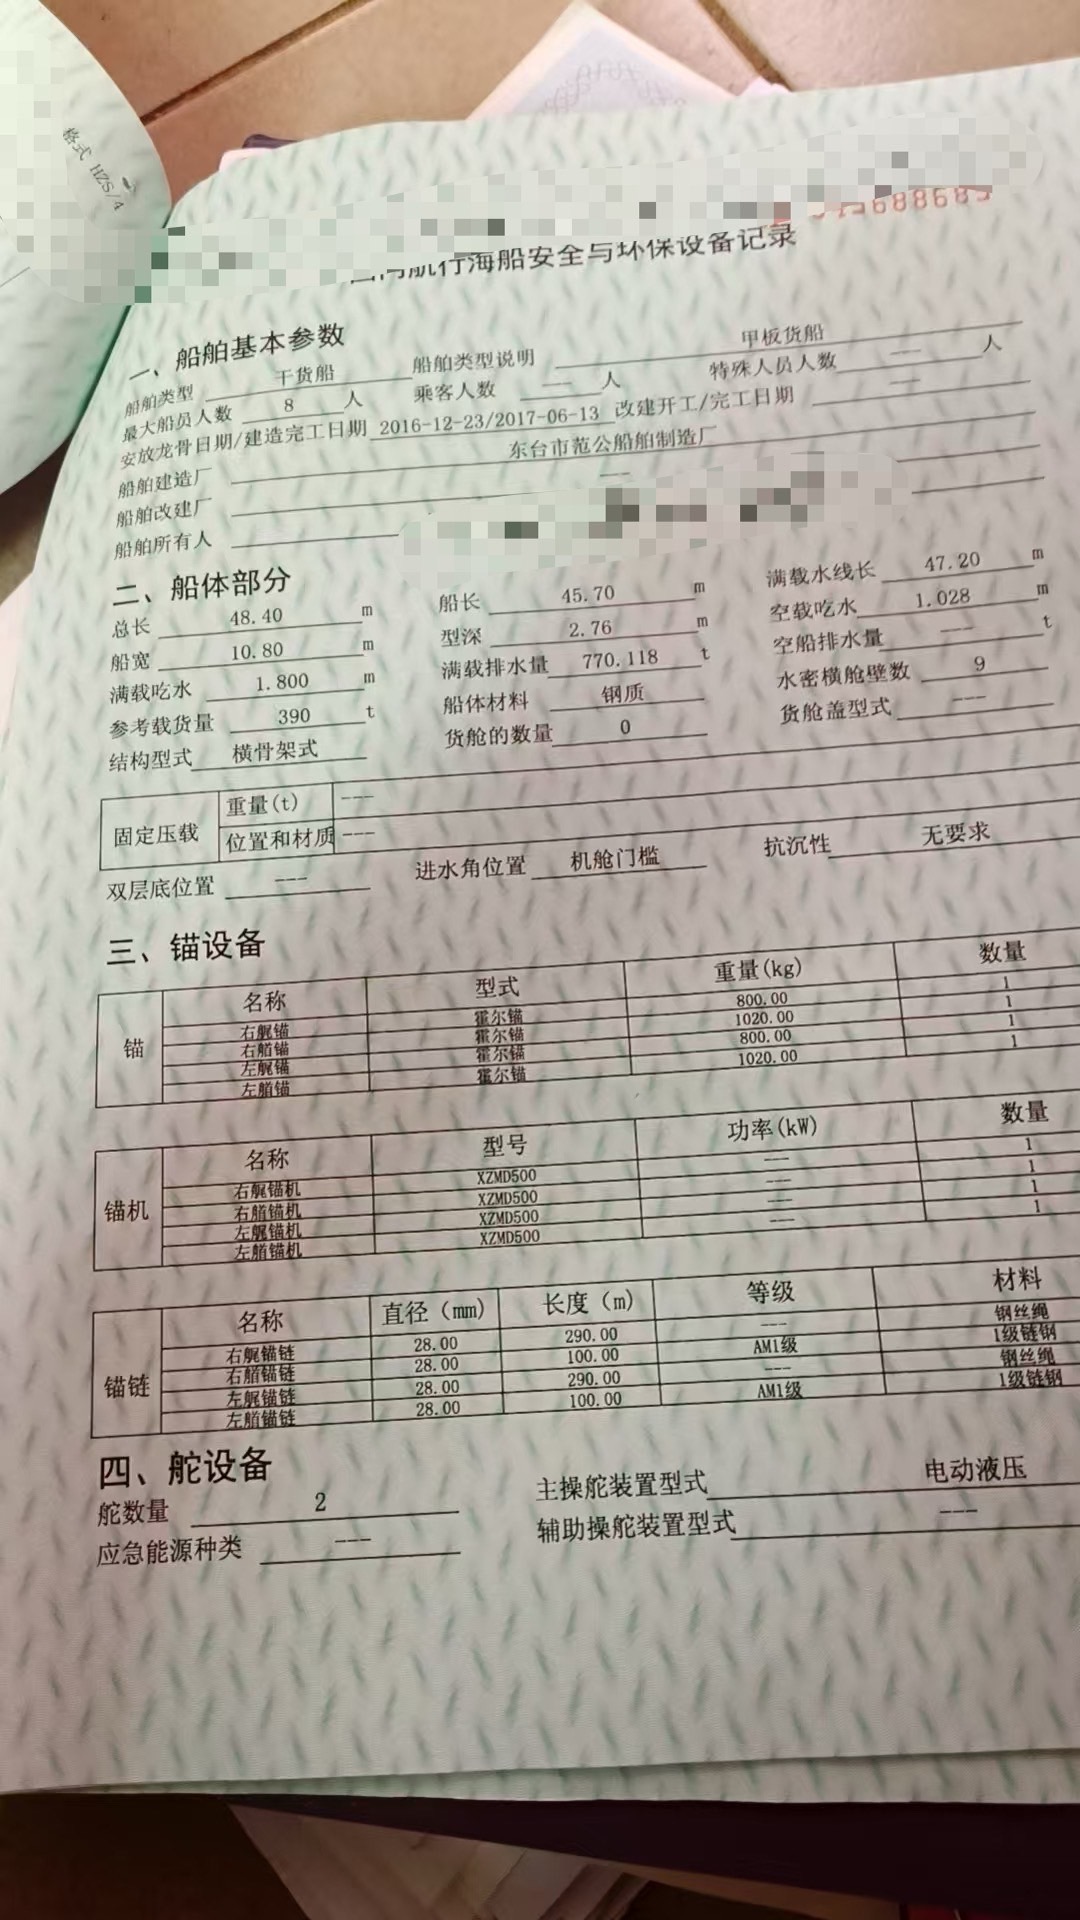 格式 HZS/4
航行海船安全与环保设备记录
一、船舶基本参数
船舶类型 干货船 船舶类型说明 甲板货船
最大船员人数 8 人 乘客人数 --- 人 特殊人员人数 --- 人
安放龙骨日期/建造完工日期 2016-12-23/2017-06-13 改建开工/完工日期 ---
船舶建造厂 东台市范公船舶制造厂
船舶改建厂 ---
船舶所有人
二、船体部分
总长 48.40 m 船长 45.70 m 满载水线长 47.20 m
船宽 10.80 m 型深 2.76 m 空载吃水 1.028 m
满载吃水 1.800 m 满载排水量 770.118 t 空船排水量 --- t
参考载货量 390 t 船体材料 钢质 水密横舱壁数 9
结构型式 横骨架式 货舱的数量 0 货舱盖型式 ---
固定压载 重量(t) ---
位置和材质 ---
双层底位置 --- 进水角位置 机舱门槛 抗沉性 无要求
三、锚设备
锚 名称 型式 重量(kg) 数量
右艉锚 霍尔锚 800.00 1
右艏锚 霍尔锚 1020.00 1
左艉锚 霍尔锚 800.00 1
左艏锚 霍尔锚 1020.00 1
锚机 名称 型号 功率(kW) 数量
右艉锚机 XZMD500 --- 1
右艏锚机 XZMD500 --- 1
左艉锚机 XZMD500 --- 1
左艏锚机 XZMD500 --- 1
锚链 名称 直径（mm) 长度（m) 等级 材料
右艉锚链 28.00 290.00 --- 钢丝绳
右艏锚链 28.00 100.00 AM1级 1级链钢
左艉锚链 28.00 290.00 --- 钢丝绳
左艏锚链 28.00 100.00 AM1级 1级链钢
四、舵设备
舵数量 2 主操舵装置型式 电动液压
应急能源种类 --- 辅助操舵装置型式 ---